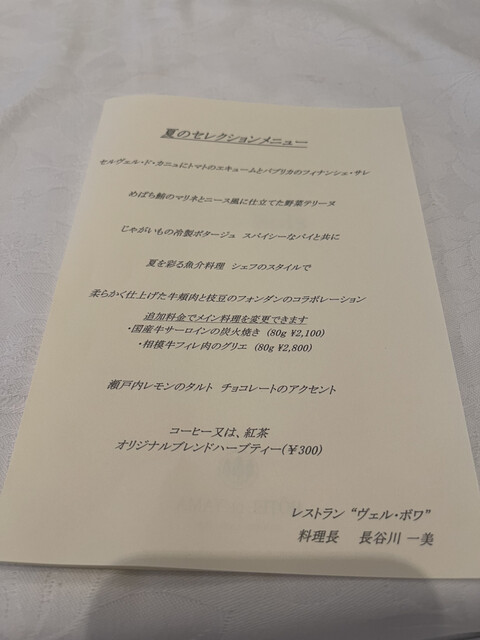 夏のセレクションメニュー
セルヴェル・ド・カニュにトマトのエキュームとパプリカのフィナンシェ・サレ
めばち鮪のマリネとニース風に仕立てた野菜テリーヌ
じゃがいもの冷製ポタージュ スパイシーなパイと共に
夏を彩る魚介料理 シェフのスタイルで
柔らかく仕上げた牛頬肉と枝豆のフォンダンのコラボレーション
追加料金でメイン料理を変更できます
・国産牛サーロインの炭火焼き (80g ¥2,100)
・相模牛フィレ肉のグリエ (80g ¥2,800)
瀬戸内レモンのタルト チョコレートのアクセント
コーヒー又は、紅茶
オリジナルブレンドハーブティー(¥300)
レストラン “ヴェル・ボワ”
料理長 長谷川 一美